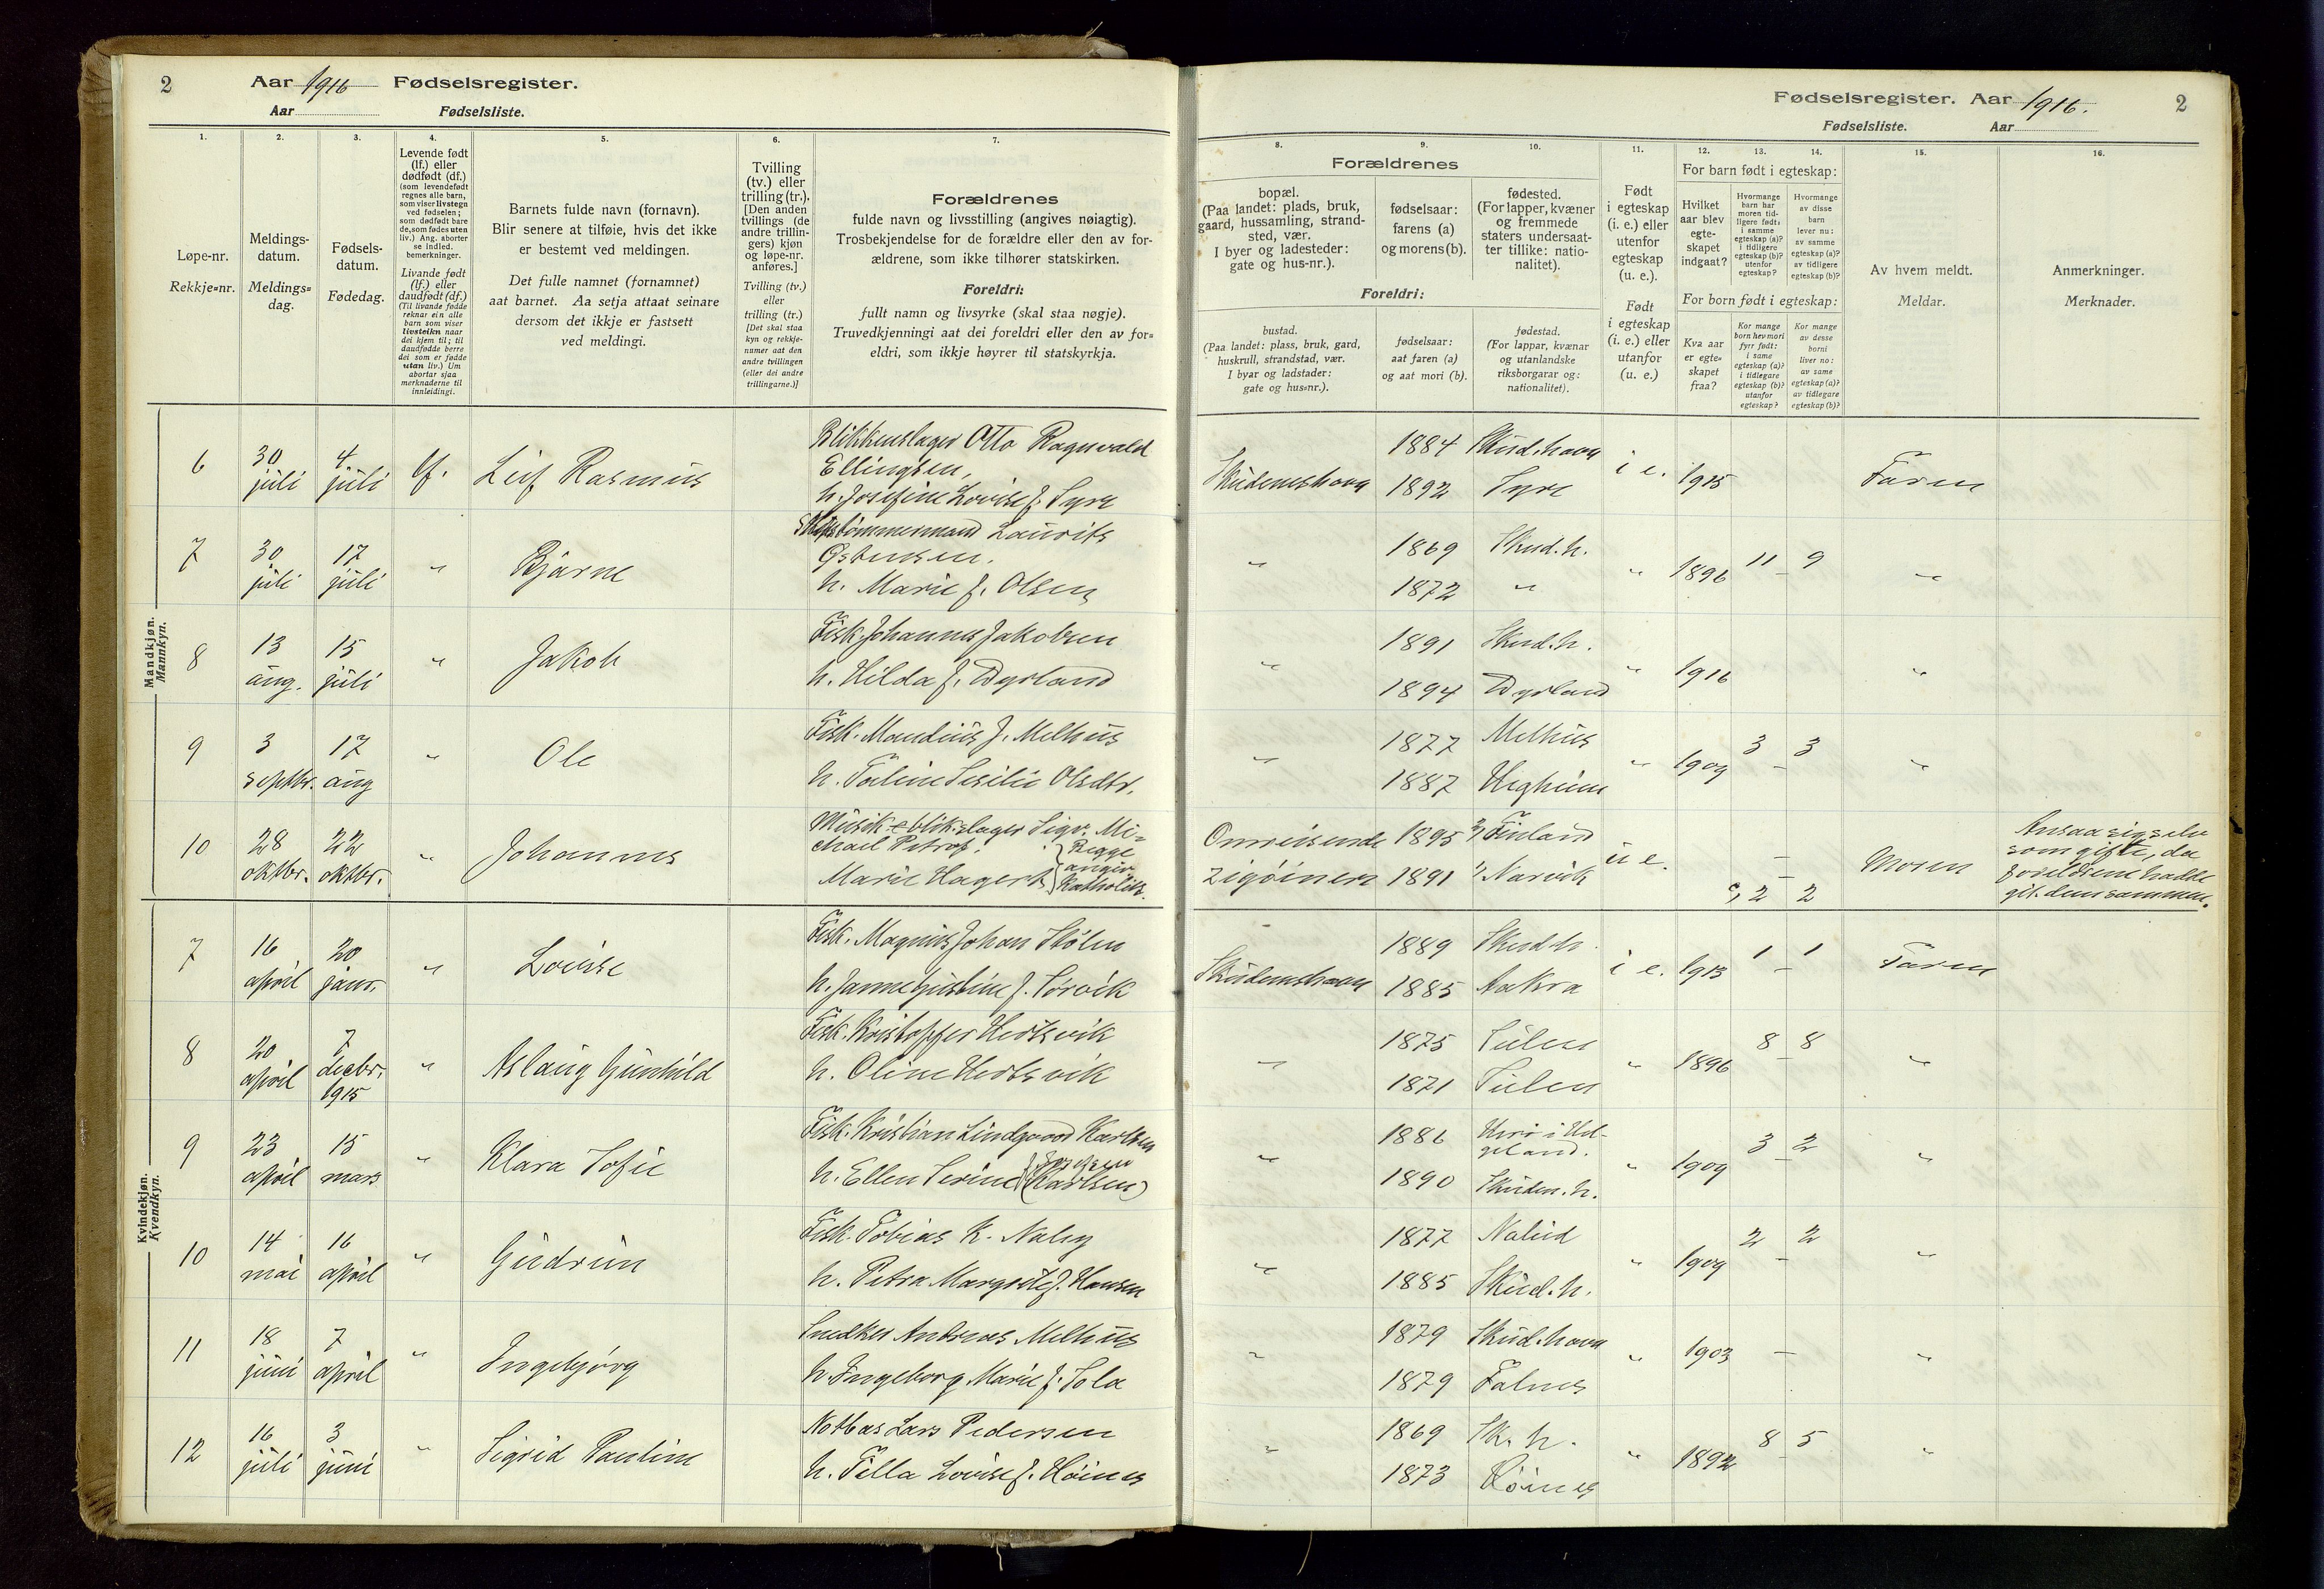 2 Aar 1916 Fødselsregister.
Aar Fødselsliste.
Fødselsregister. Aar 1916. 2
Fødselsliste. Aar
1. 2. 3. 4. 5. 6. 7. 8. 9. 10. 11. 12. 13. 14. 15. 16.
Løpe-nr.
Rekkje=nr.
Meldings-
datum.
Meldings=
dag.
Fødsels-
datum.
Fødedag.
Levende født
(lf.) eller
dødfødt (df.)
(som levendefødt
regnes alle barn,
som viser livstegn
ved fødselen;
som dødfødt bare
de, som fødes uten
liv.) Ang. aborter
se indled.
bemerkninger.
Livande født
(lf.) eller
daudfødt (df.)
(Til livande fødde
reknar ein alle
barn som viser
livsteikn naar
dei kjem til; til
daudfødde berre
dei som er fødde
utan liv.) Um
abortar sjaa
merknaderne til
innleidingi.
Barnets fulde navn (fornavn).
Blir senere at tilføie, hvis det ikke
er bestemt ved meldingen.
Det fulle namnet (fornamnet)
aat barnet. Aa setja attaat seinare
dersom det ikkje er fastsett
ved meldingi.
Tvilling
(tv.) eller
trilling (tr.).
[Den anden
tvillings (de
andre trillin-
gers) kjøn
og løpe-nr.
anføres.]
Tvilling (tv.)
eller
trilling (tr.)
[Det skal staa
kyn og rekkje-
numer aat den
andre tvillingen
(eller dei andre
trillingarne.)]
Forældrenes
fulde navn og livsstilling (angives nøiagtig).
Trosbekjendelse for de forældre eller den av for-
ældrene, som ikke tilhører statskirken.
Foreldri:
fullt namn og livsyrke (skal staa nøgje).
Truvedkjenningi aat dei foreldri eller den av for=
eldri, som ikkje høyrer til statskyrkja.
Forældrenes
bopæl.
(Paa landet: plads, bruk,
gaard, hussamling, strand-
sted, vær.
I byer og ladesteder:
gate og hus-nr.).
fødselsaar:
farens (a)
og morens (b).
fødested.
(For lapper, kvæner
og fremmede
staters undersaat-
ter tillike: natio-
nalitet).
Foreldri:
bustad.
(Paa landet: plass, bruk, gard,
huskrull, strandstad, vær.
I byar og ladstader:
gate og hus=nr.).
fødselsaar:
aat faren (a)
og aat mori (b).
fødestad.
(For lappar, kvænar
og utanlandske
riksborgarar og:
nationalitet).
Født
i egteskap
(i. e.) eller
utenfor
egteskap
(u. e.).
Født
i egteskap
(i. e.) eller
utanfor
egteskap
(u. e.)
For barn født i egteskap:
Hvilket
aar blev
egte-
skapet
indgaat?
Hvormange
barn har
moren tid-
ligere født:
i samme
egteskap (a)?
i tidligere
egteskap (b)?
utenfor
egteskap?
Hvormange
av disse
barn
lever nu:
av samme
egteskap (a)?
av tidligere
egteskap (b)?
For born født i egteskap:
Kva aar
er egte=
skapet
fraa?
Kor mange
born hev mori
fyrr født:
i same
egteskap (a)?
i tidlegare
egteskap (b)?
utanfor
egteskap?
Kor mange
av desse
borni
liver no:
av same
egteskap (a)?
av tidlegare
egteskap (b)?
Av hvem meldt.
Meldar.
Anmerkninger.
Merknader.
Mandkjøn.
Mannkyn.
6 30 juli 4 juli lf. Leif Rasmus
Blikkenslager Otto Ragnvald
Ellingsen,
h. Josefine Lovise f. Syre
Skudeneshavn 1884 Skud.havn i e. 1915 Faren
1892 Syre
7 30 juli 17 juli " Bjarne
Skibstømmermand Laurits
Østensen.
h. Marie f. Olsen
" 1869 Skud.h. " 1896 11 - 9 "
1872 "
8 13 aug. 15 juli " Jakob
Fisk. Johannes Jakobsen
h. Hilda f. Dyrland
" 1891 Skud.h. " 1916 "
1894 Dyrland
9 3 septbr. 17 aug " Ole
Fisk. Mandius J. Melhus
h. Taline Sesilie Olsdtr.
" 1877 Melhus " 1909 3 - 3 "
1887 Hegheim
10 28 oktbr. 22 oktbr. " Johannes
Musik- & blik.slager Sigv. Mi-
chael Petrof.
Marie Hagert
Begge
angiv.
Katholik.
Omreisende 1895 Finland u e. - Moren
zigøinere 1891 Narvik 2 2
Ansaa sig selv
som gifte, da
foreldrene hadde
git dem sammen.
Kvindekjøn.
Kvendkyn.
7 16 april 20 janr. " Lovise
Fisk. Magnus Johan Stølen
h. Janne Gustine f. Sørvik
Skudeneshavn 1889 Skud h. i e. 1913 1 - 1 Faren
1885 Aakra
8 20 april 7 decbr. 1915 " Aslaug Gunhild
Fisk. Kristoffer Hertsvik
h. Oline Hertsvik
" 1875 Sulen " 1896 8 - 8 "
1871 Sulen
9 23 april 15 mars " Klara Sofie
Fisk. Kristian Lindgaard Karlsen
h. Ellen Serine (Karlsen)
" 1886 Herø i Hel-
geland. " 1909 3 - 2 "
1890 Skuden.h.
10 14 mai 16 april " Gudrun
Fisk. Tobias K. Naley
h. Petra Margrite f. Hansen
" 1877 Nalud " 1909 2 - 2 "
1885 Skud.h.
11 18 juni 7 april " Ingebjørg
Snedker Andreas Melhus
h. Ingeborg Marie f. Sola
" 1879 Skud.havn " 1903 - "
1879 Falnes
12 16 juli 3 juni " Sigrid Pauline
Notbas Lars Pedersen
h. Tilla Lovise f. Høines
" 1869 Sk. h. " 1892 8 - 5 "
1873 Høines